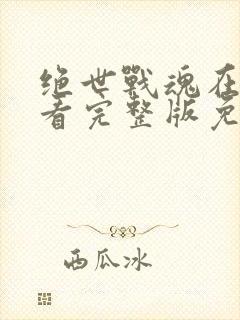 绝世戰魂在
看完整版免
西瓜冰